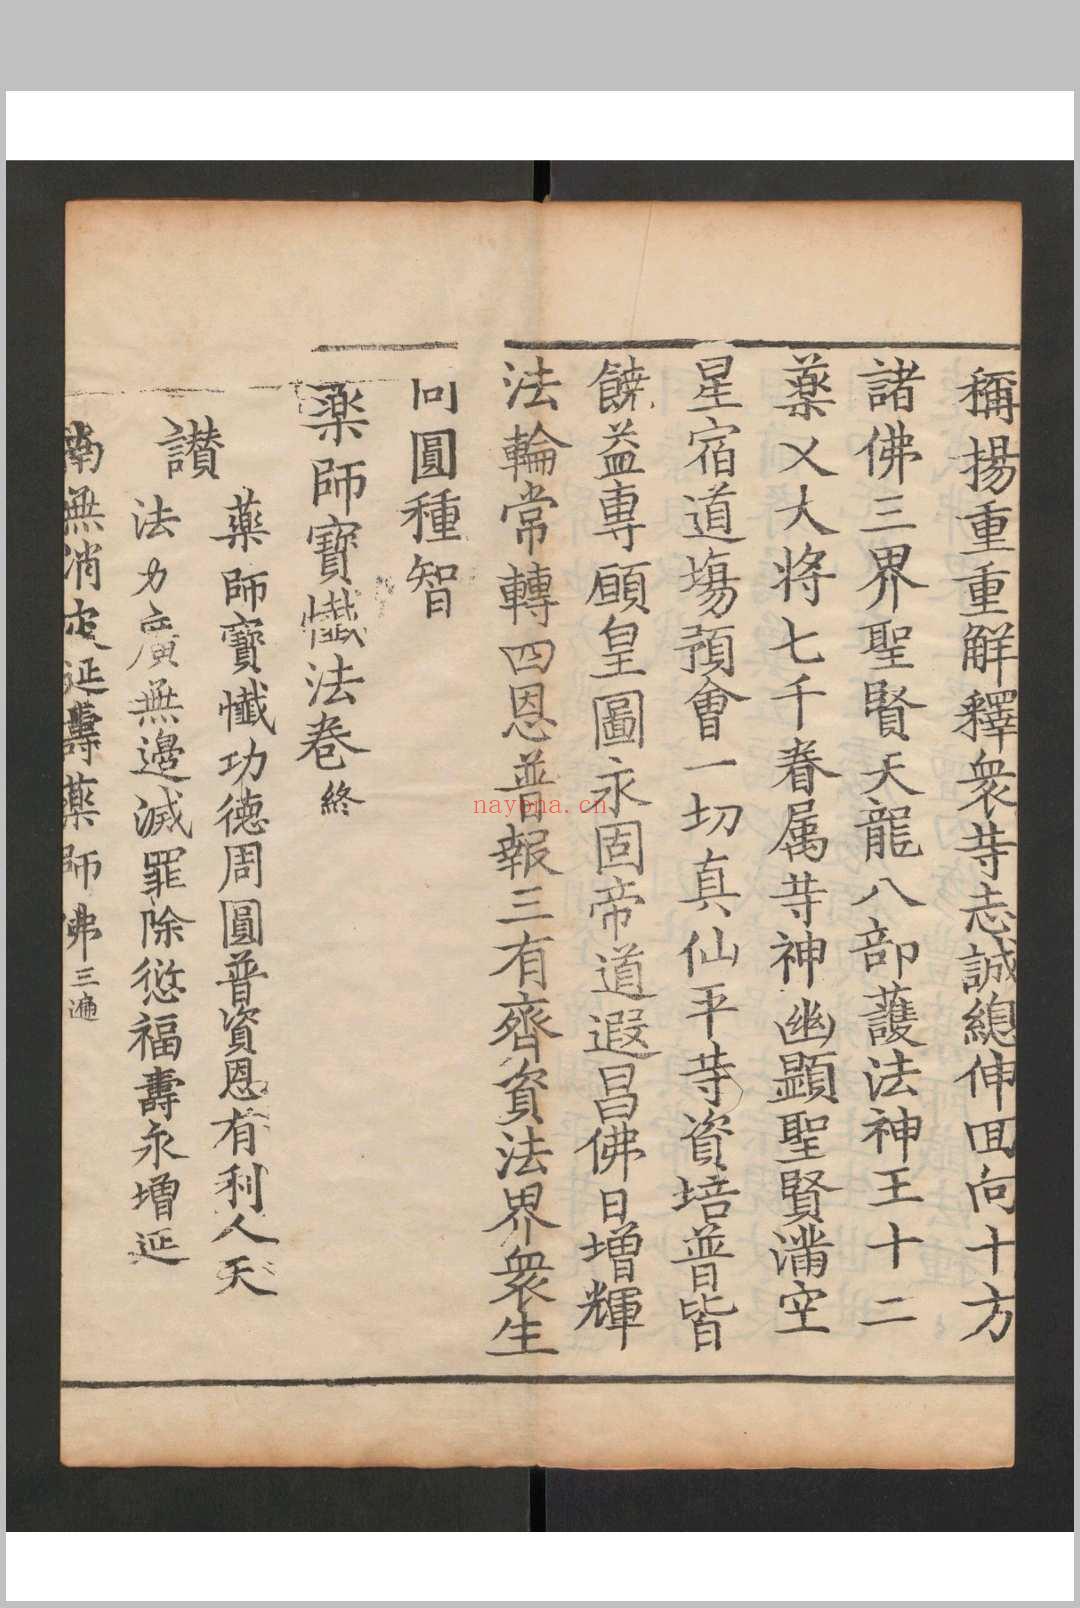 稱揚重重解釋衆等志誠總伸囬向十方
諸佛三界聖賢天龍八部護法神王十二
藥乂大將七千眷属等神幽顯聖賢滿空
星宿道塲預會一切真仙平等資培普皆
饒益專願皇圖永固帝道遐昌佛日增輝
法輪常轉四恩普報三有齊資法界衆生
同圓種智
藥師寶懺法卷終
讃
藥師寶懺功德周圓普資恩有利人天
法力廣無邊滅罪除愆福壽永增延
南無消灾延壽藥師佛三遍
nayona.cn